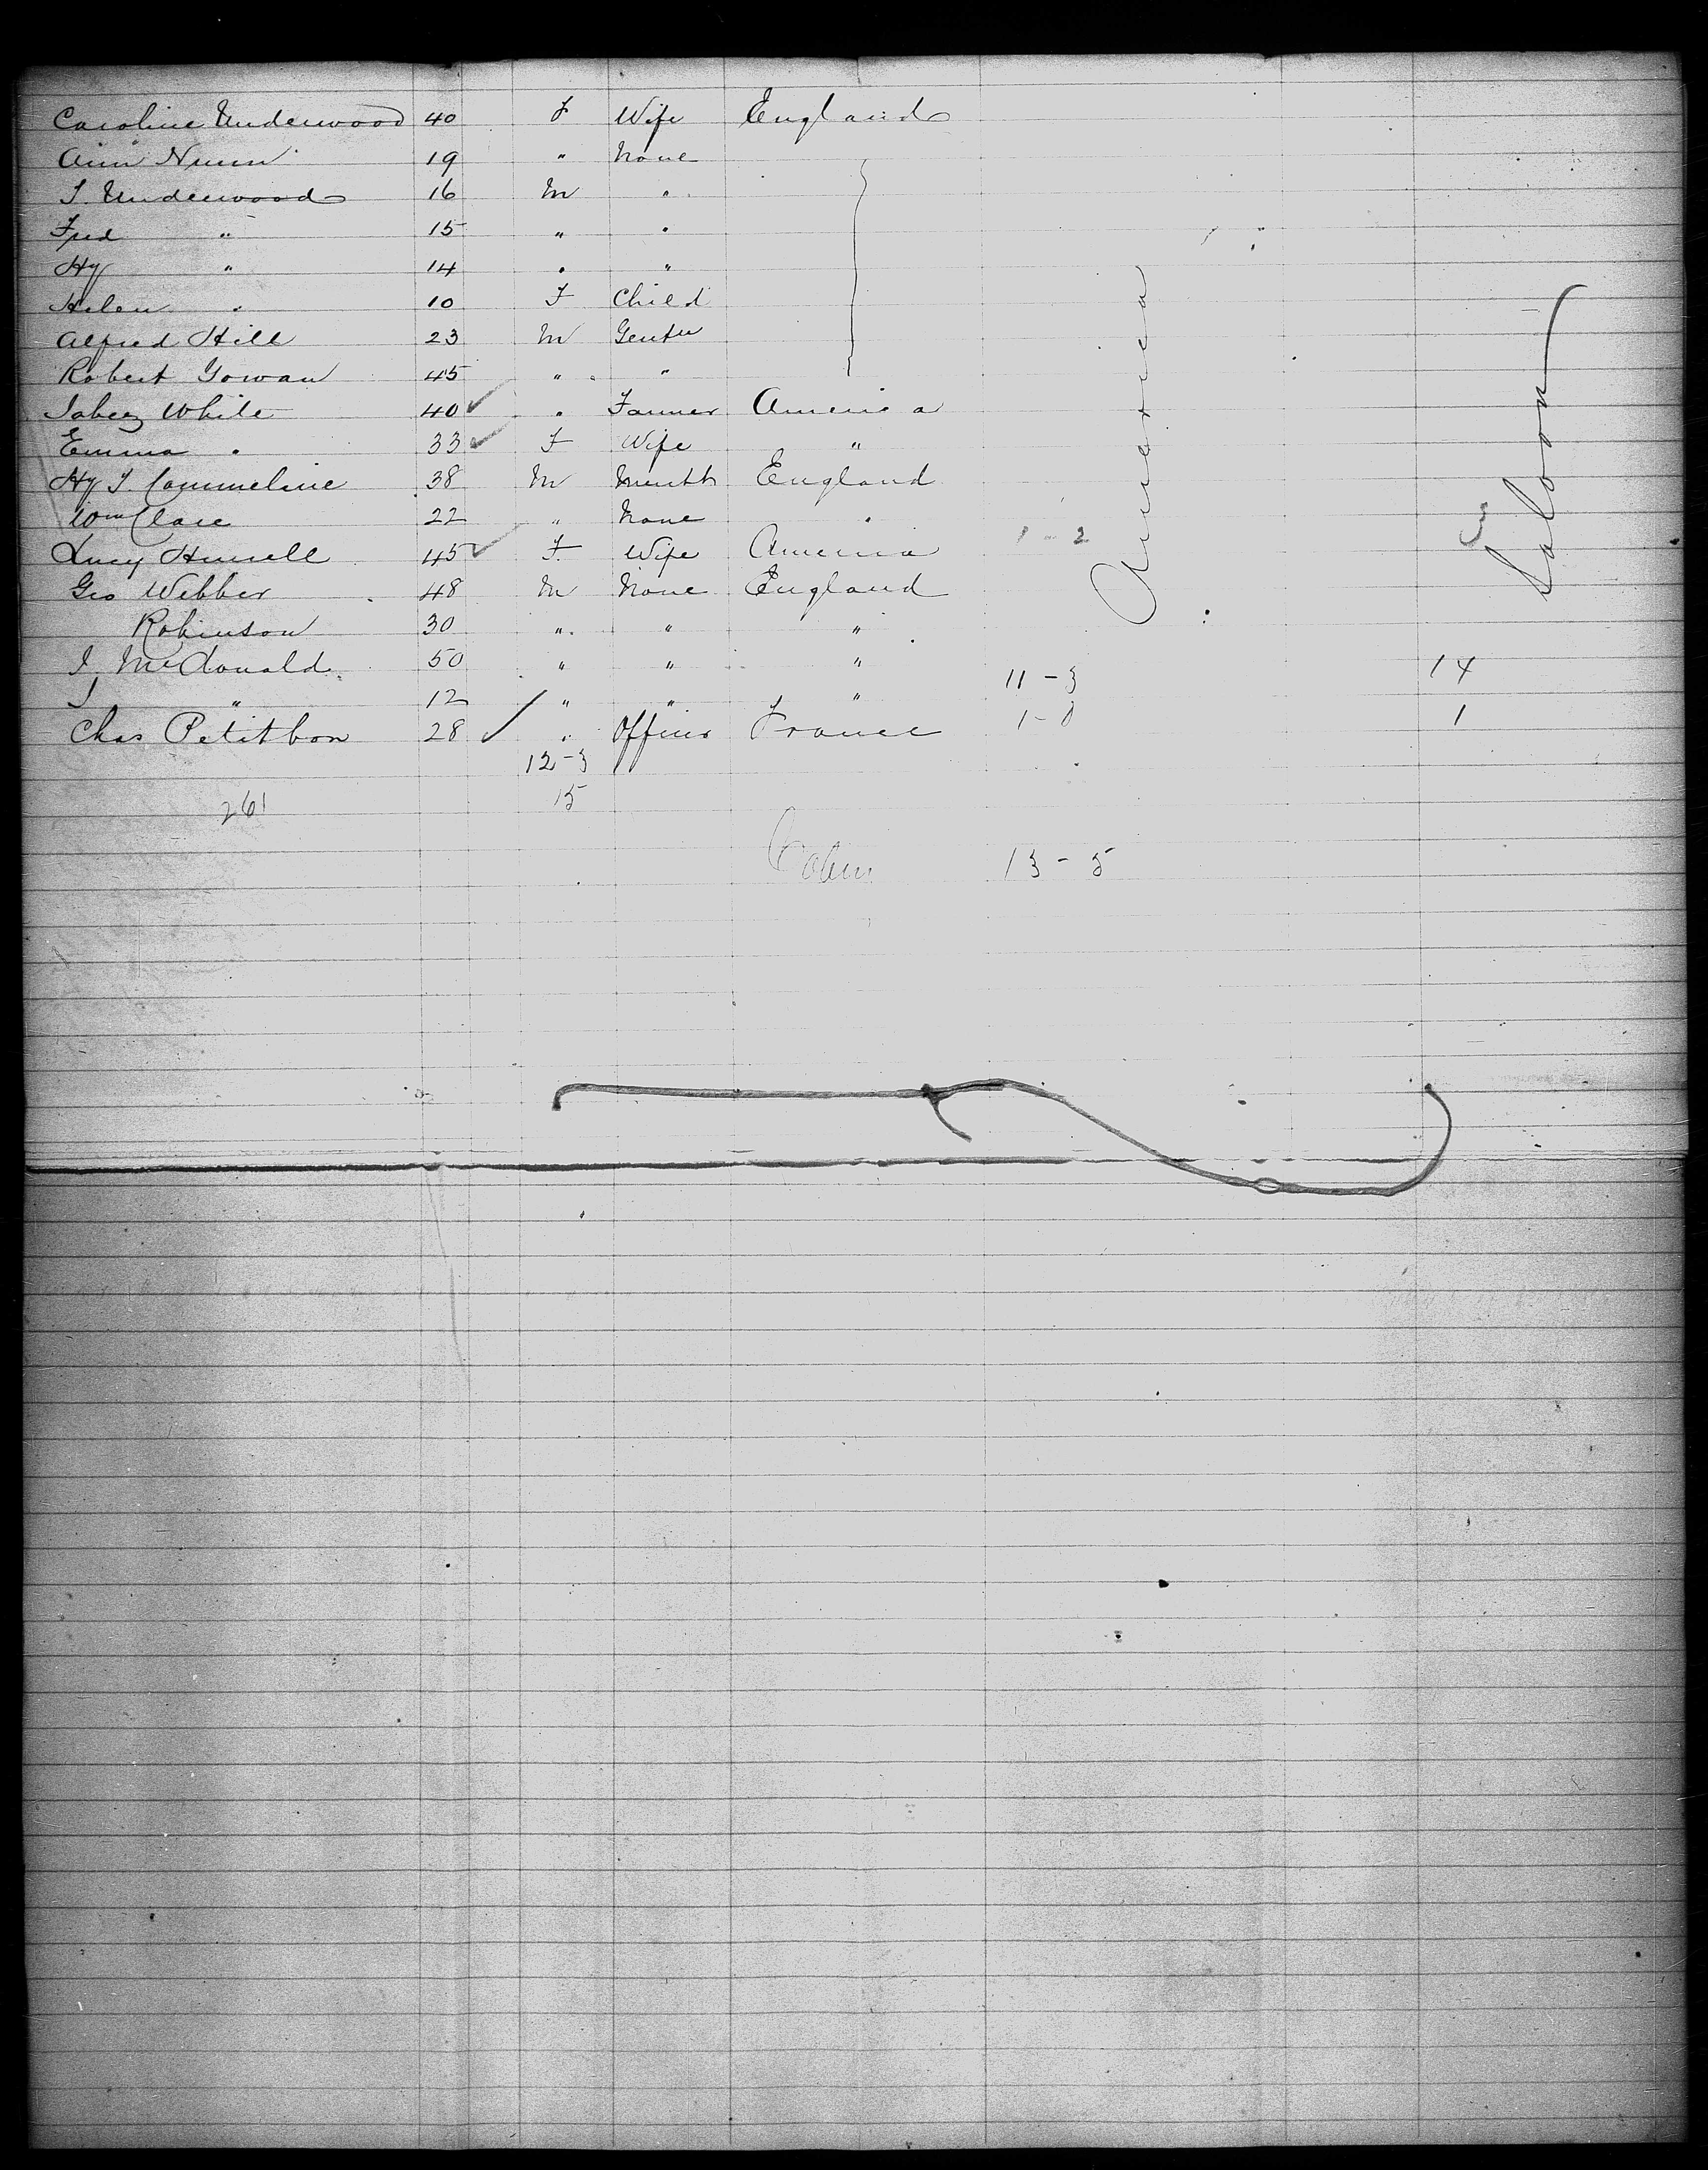 Caroline Underwood 40 F Wife England
Ann Nunn 19 " None
T. Underwood 16 M "
Fred " 15 " "
Hy " 14 " "
Helen " 10 F Child
Alfred Hill 23 M Gentn
Robert Gowan 45 " "
Jabez White 40 ✓ " Farmer America
Emma " 33 ✓ F Wife "
Hy T. Commeline 38 M England
Wm Clare 22 " None "
Lucy 45 ✓ F Wife America 1-2
Geo Webber 48 M None England
Robinson 30 " " "
J. McDonald 50 " " " 11-3 14
J " 12 " " "
Chas Petitbon 28 ✓ " Officer France 1-0 1
12-3
261 15
Cabin 13-5
America
Saloon